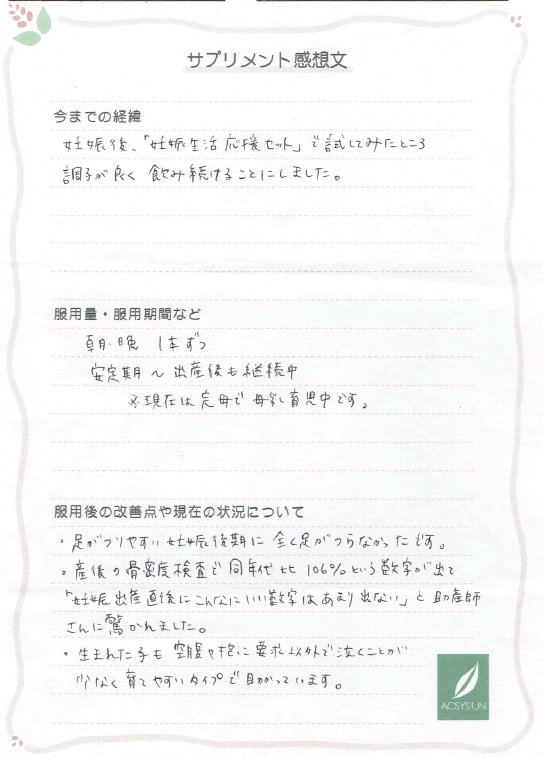 サプリメント感想文
今までの経緯
妊娠後、「妊娠生活応援セット」で試してみたところ
調子が良く 飲み続けることにしました。
服用量・服用期間など
朝・晩 1本ずつ
安定期〜出産後も継続中
※現在は完母で母乳育児中です。
服用後の改善点や現在の状況について
・足がつりやすい妊娠後期に全く足がつらなかったです。
・産後の骨密度検査で同年代比106%という数字が出て
「妊娠出産直後にこんなにいい数字はあまり出ない」と助産師
さんに驚かれました。
・生まれた子も空腹や抱っこ要求以外で泣くことが
少なく育てやすいタイプで助かっています。
ACSYSUN